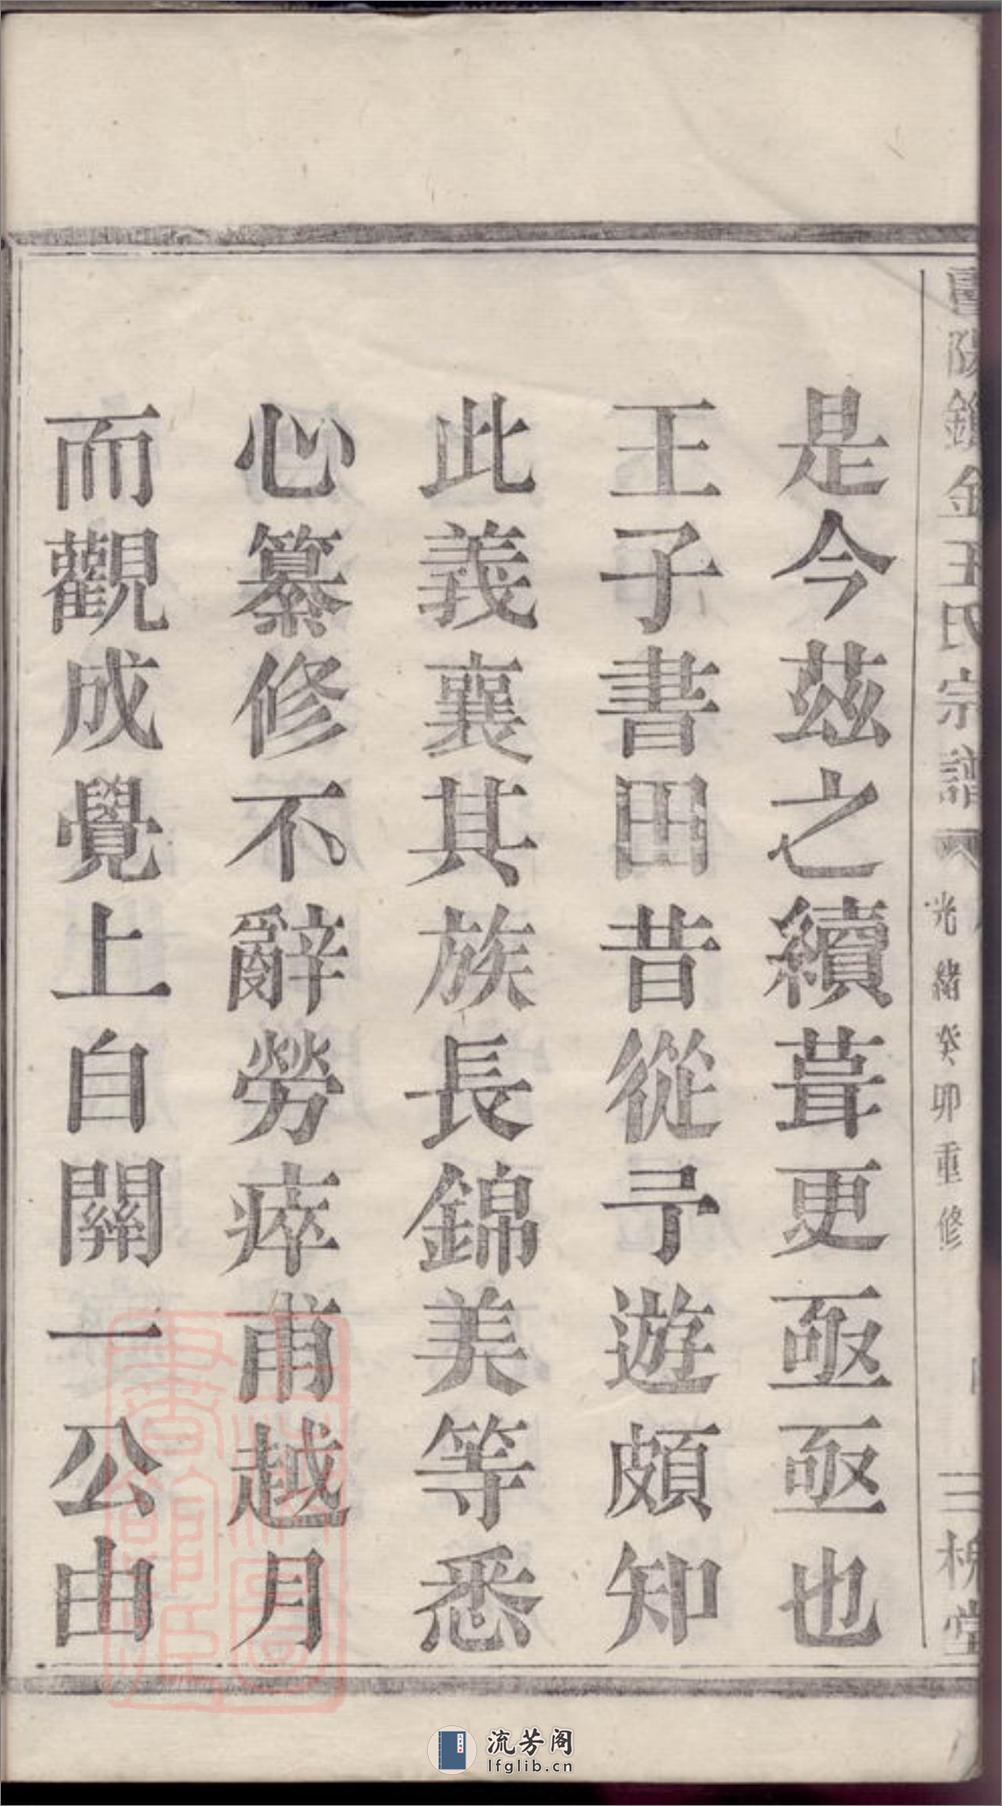 是今茲之續葺更亟亟也
王子書田昔從予遊頗知
此義襄其族長錦美等悉
心纂修不辭勞瘁甫越月
而觀成覺上自關一公由
金王氏宗譜
光緒癸卯重修
三槐堂
流芳阁
lfglib.cn